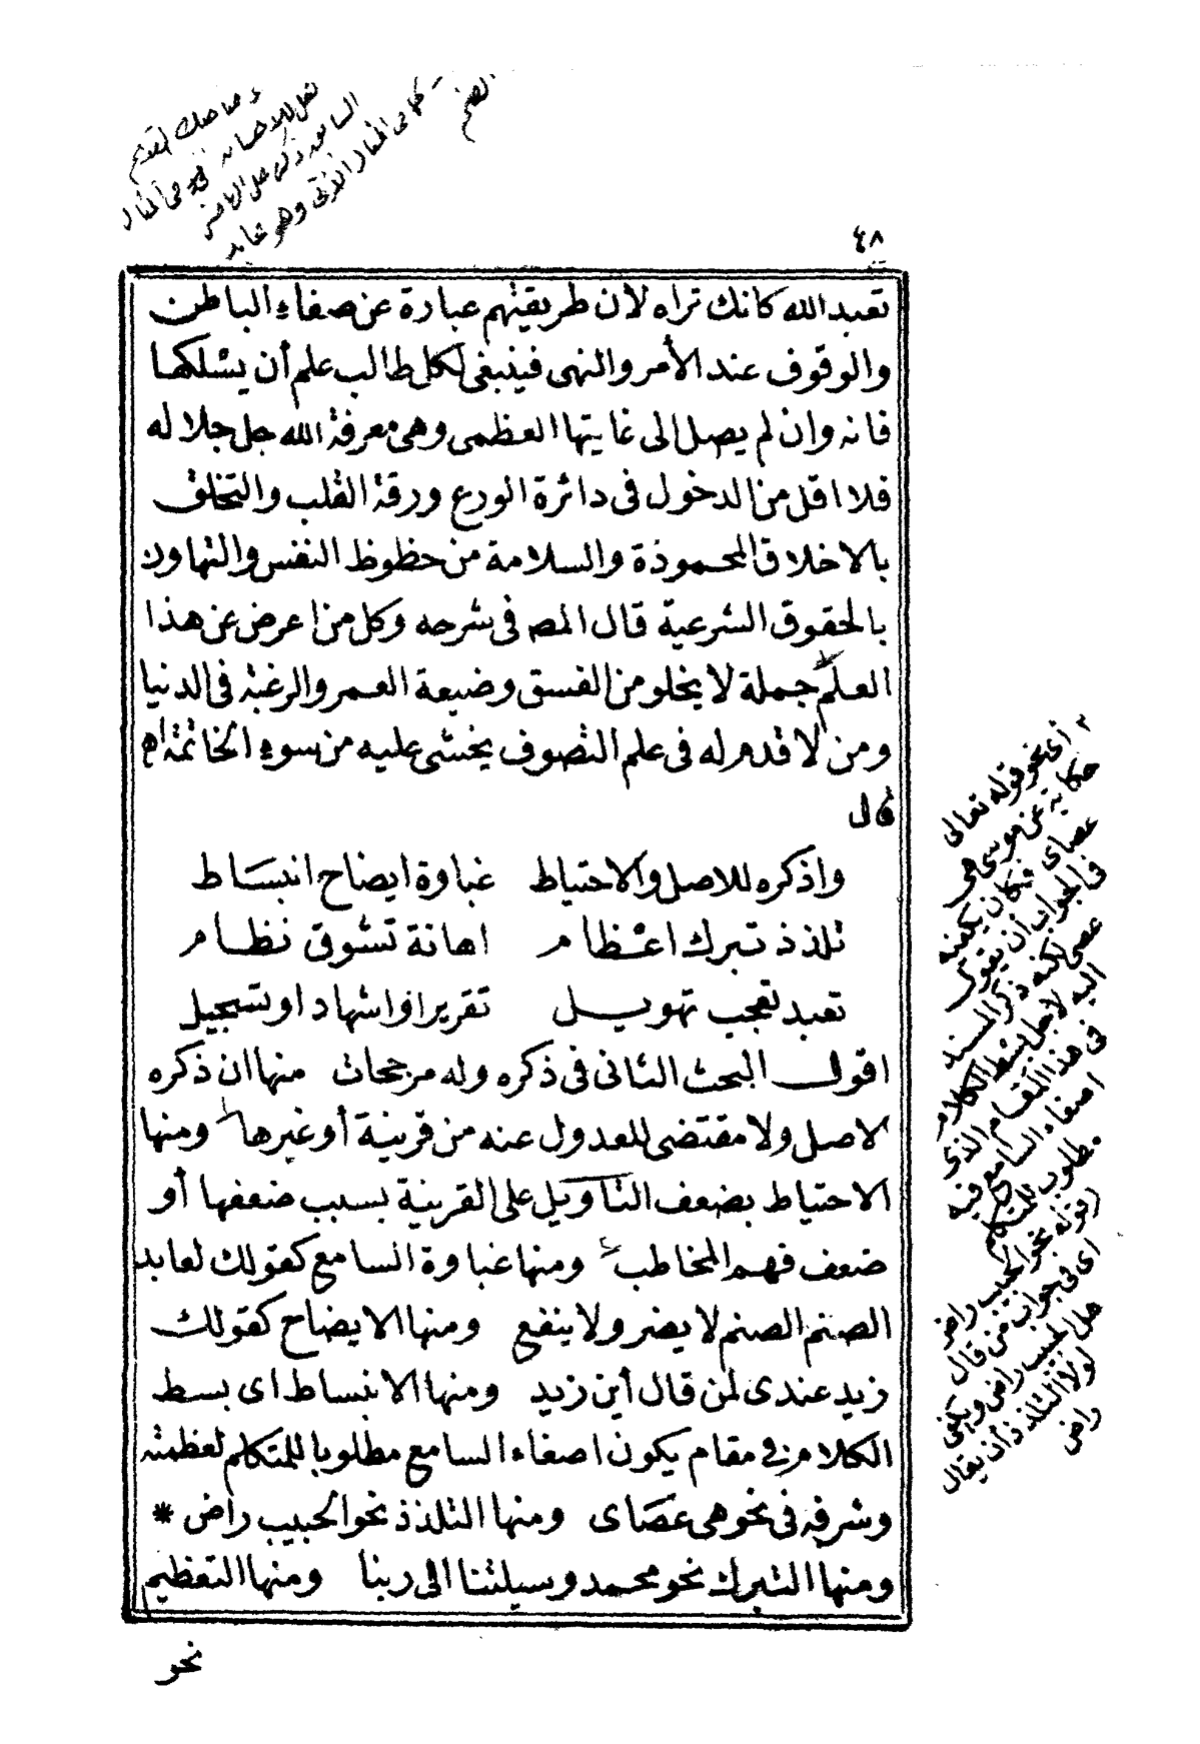 ٤٨
تعبد الله كانك تراه لأن طريقتهم عبارة عن صفاء الباطن
والوقوف عند الأمر والنهى فينبغى لكل طالب علم أن يسلكها
فانه وان لم يصل الى غايتها العظمى وهى معرفة الله جل جلاله
فلا اقل من الدخول فى دائرة الورع ورقة القلب والتخلق
بالاخلاق المحمودة والسلامة من حظوظ النفس والتهاون
بالحقوق الشرعية قال المص فى شرحه وكل من اعرض عن هذا
العلم جملة لا يخلو من الفسق وضيعة العمر والرغبة فى الدنيا
ومن لا قدم له فى علم التصوف يخشى عليه من سوء الخاتمة اه
قال
واذكره للاصل والاحتياط غباوة ايضاح انبساط
تلذذ تبرك اعظام اهانة تشوق نظام
تعبد تعجب تهويل تقرير او اشهاد او تسجيل
اقول البحث الثانى فى ذكره وله مرجحات منها ان ذكره
الاصل ولا مقتضى للعدول عنه من قرينة أو غيرها ومنها
الاحتياط بضعف التاويل على القرينة بسبب ضعفها أو
ضعف فهم المخاطب ومنها غباوة السامع كقولك لعابد
الصنم الصنم لا يضر ولا ينفع ومنها الايضاح كقولك
زيد عندى لمن قال أين زيد ومنها الانبساط اى بسط
الكلام فى مقام يكون اصغاء السامع مطلوبا للمتكلم لعظمته
وشرفه فى نحو هى عصاى ومنها التلذذ نحو الحبيب راض *
ومنها التبرك نحو محمد وسيلتنا الى ربنا ومنها التعظيم
نحو
٢ أى نحو قوله تعالى
حكاية عن موسى هى
عصاى فكان يكفيه
فى الجواب أن يقول
عصى لكنه ذكر المسند
اليه لاجل بسط الكلام
فى هذا المقام الذى
اصغاء السامع فيه
مطلوب للمتكلم
قوله نحو الحبيب راض
اى فى جواب من قال
هل الحبيب راض ويكفى
لولا التلذذ أن يقال
راض